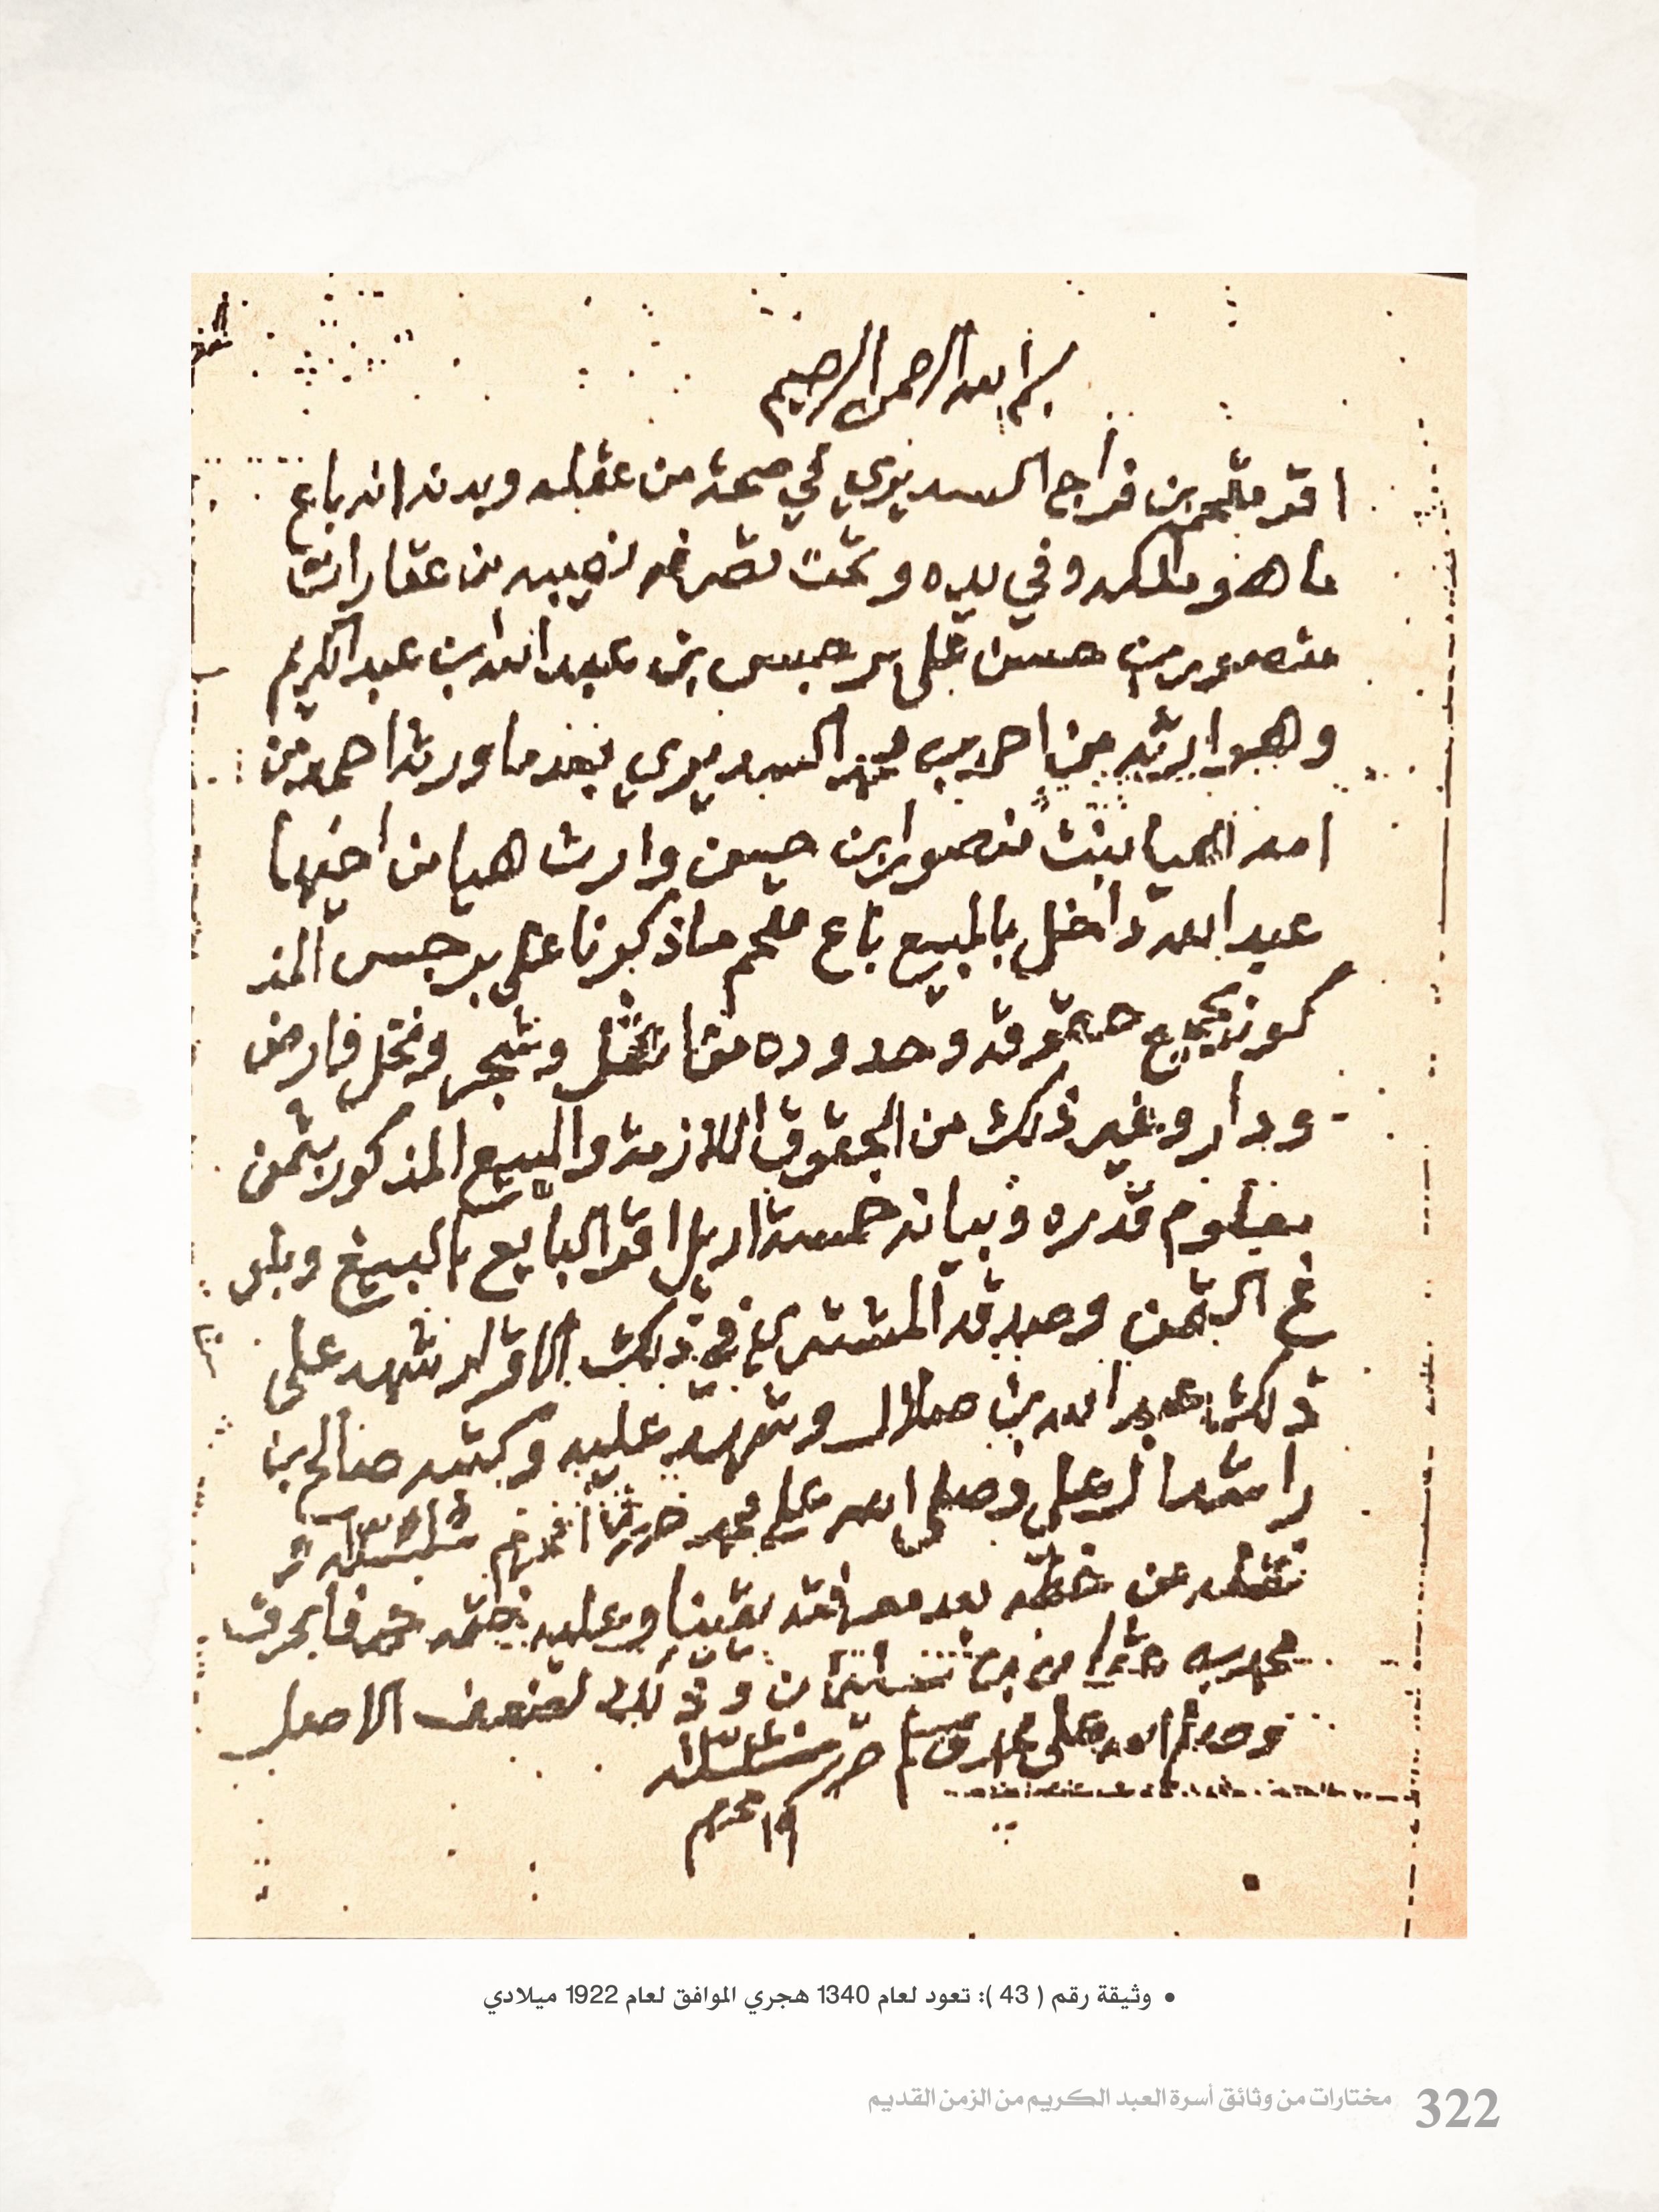 بسم الله الرحمن الرحيم
اقر ملحم بن فراج السديري في صحة من عقله وبدنه انه باع
ما هو ملكه وفي يده وتحت تصرفه نصيبه من عقارات
منصور بن حسين على برجس بن عبد الله بن عبد الكريم
وهو ارثه من احمد بن السديري بعد ما ورث احمد من
امه هيا بنت منصور ابن حسين وارث هيا من اخيها
عبد الله داخل بالمبيع باع ملحم ما ذكرنا على برجس المذ
كور بجميع حقوقه وحدوده من نخل وشجر ونخل وارض
ودار وغير ذلك من الحقوق اللازمة والمبيع المذكور بثمن
معلوم قدره وبيانه خمسة اريل اقر البايع بالبيع وبلو
غ الثمن وصدقه المشتري في ذلك الاقرار شهد على
ذلك عبد الله بن صلال وشهد عليه وكتبه صالح بن
راشد وصلى الله على محمد حرر
نقله عن خطه بعد معرفته يقينا وعليه ختمه حرفا بحرف
من وذلك لضعف الاصل
وصلى الله على محمد وسلم حرر سنة
محرم
• وثيقة رقم ( 43 ): تعود لعام 1340 هجري الموافق لعام 1922 ميلادي
322 مختارات من وثائق أسرة العبد الكريم من الزمن القديم